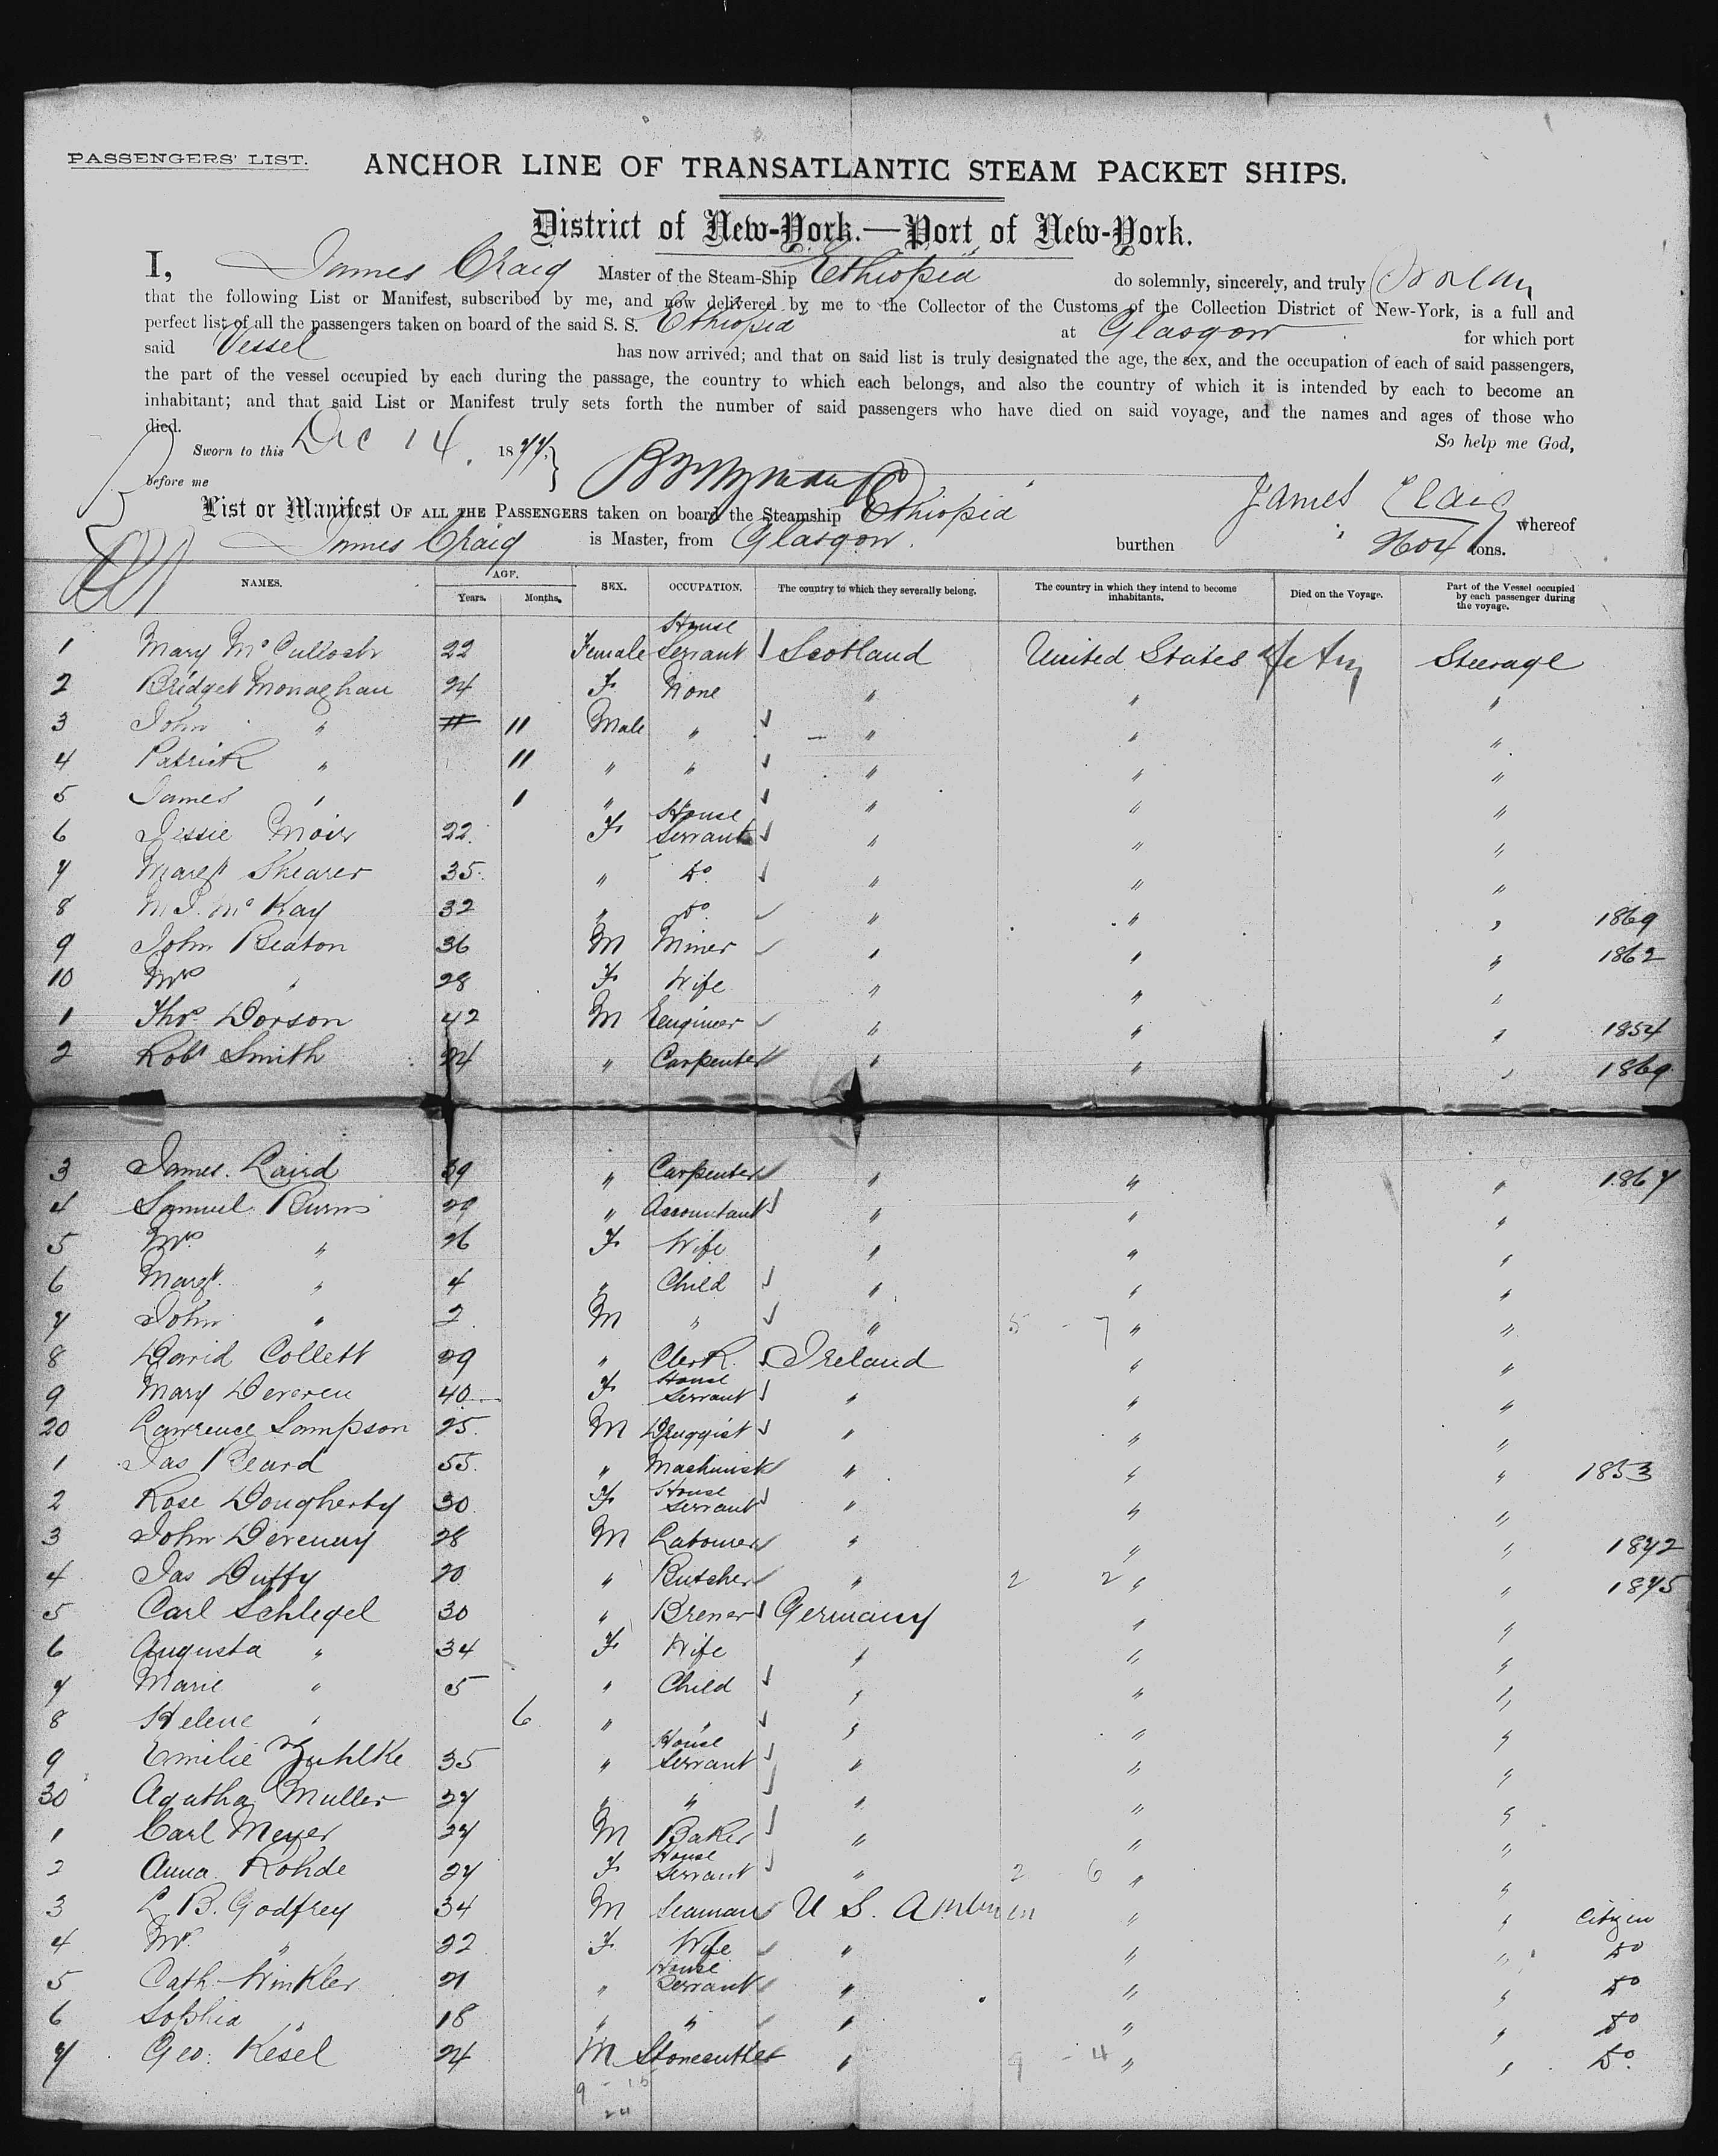 PASSENGERS' LIST.
ANCHOR LINE OF TRANSATLANTIC STEAM PACKET SHIPS.
District of New-York.—Port of New-York.
I, James Craig Master of the Steam-Ship Ethiopia do solemnly, sincerely, and truly
that the following List or Manifest, subscribed by me, and now delivered by me to the Collector of the Customs of the Collection District of New-York, is a full and
perfect list of all the passengers taken on board of the said S. S. Ethiopia at Glasgow for which port
said Vessel has now arrived; and that on said list is truly designated the age, the sex, and the occupation of each of said passengers,
the part of the vessel occupied by each during the passage, the country to which each belongs, and also the country of which it is intended by each to become an
inhabitant; and that said List or Manifest truly sets forth the number of said passengers who have died on said voyage, and the names and ages of those who
died. So help me God,
Sworn to this Dec 14 1877
before me
James Craig
List or Manifest OF ALL THE PASSENGERS taken on board the Steamship Ethiopia whereof
James Craig is Master, from Glasgow. burthen tons.
NAMES. AGE. Years. Months. SEX. OCCUPATION. The country to which they severally belong. The country in which they intend to become inhabitants. Died on the Voyage. Part of the Vessel occupied by each passenger during the voyage.
1 Mary McCulloch 22 Female House Servant Scotland United States Steerage
2 Bridget Monaghan 24 F None " " "
3 John " 11 Male " " " "
4 Patrick " 11 " " " " "
5 James " 1 " " " "
6 Jessie Moir 22 F House Servant " " "
7 Margt Shearer 35 " Do " " "
8 M.J. McKay 32 " Do " " " 1869
9 John Beaton 36 M Miner " " " 1862
10 Mrs " 28 F Wife " " "
1 Thos Dorson 42 M Engineer " " " 1854
2 Robt Smith 24 " Carpenter " " " 1869
3 James Laird 39 " Carpenter " " " 1867
4 Samuel Burns 29 " Accountant " " "
5 Mrs " 26 F Wife " " "
6 Margt " 4 " Child " " "
7 John " 2 M " " 5 - 7 " "
8 David Collett 29 " Clerk Ireland " "
9 Mary Devereu 40 F House Servant " " "
20 Lawrence Sampson 25 M Druggist " " "
1 Jas Beard 55 " Machinist " " " 1853
2 Rose Dougherty 30 F House Servant " " "
3 John Devenny 28 M Labourer " " " 1872
4 Jas Duffy 20 " Butcher " 2 2 " " 1875
5 Carl Schlegel 30 " Brewer Germany " "
6 Augusta " 34 F Wife " " "
7 Marie " 5 " Child " " "
8 Helene " 6 " " " " "
9 Emilie Zuhlke 35 " House Servant " " "
30 Agatha Muller 27 " " " " "
1 Carl Meyer 27 M Baker " " "
2 Anna Rohde 27 F House Servant " 2 - 6 " "
3 L. B. Godfrey 34 M Seaman U S. America " " Citizen
4 Mrs " 22 F Wife " " " Do
5 Cath Winkler 21 " House Servant " " " Do
6 Sophia " 18 " " " " " Do
7 Geo. Kesel 24 M Stonecutter " 9 - 4 " " Do
9 - 15
24